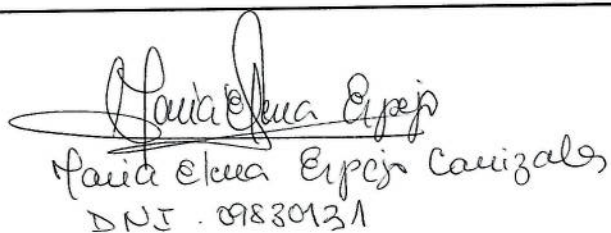 Maria Elena Espejo
Maria Elena Espejo Canizales
DNI . 09830131